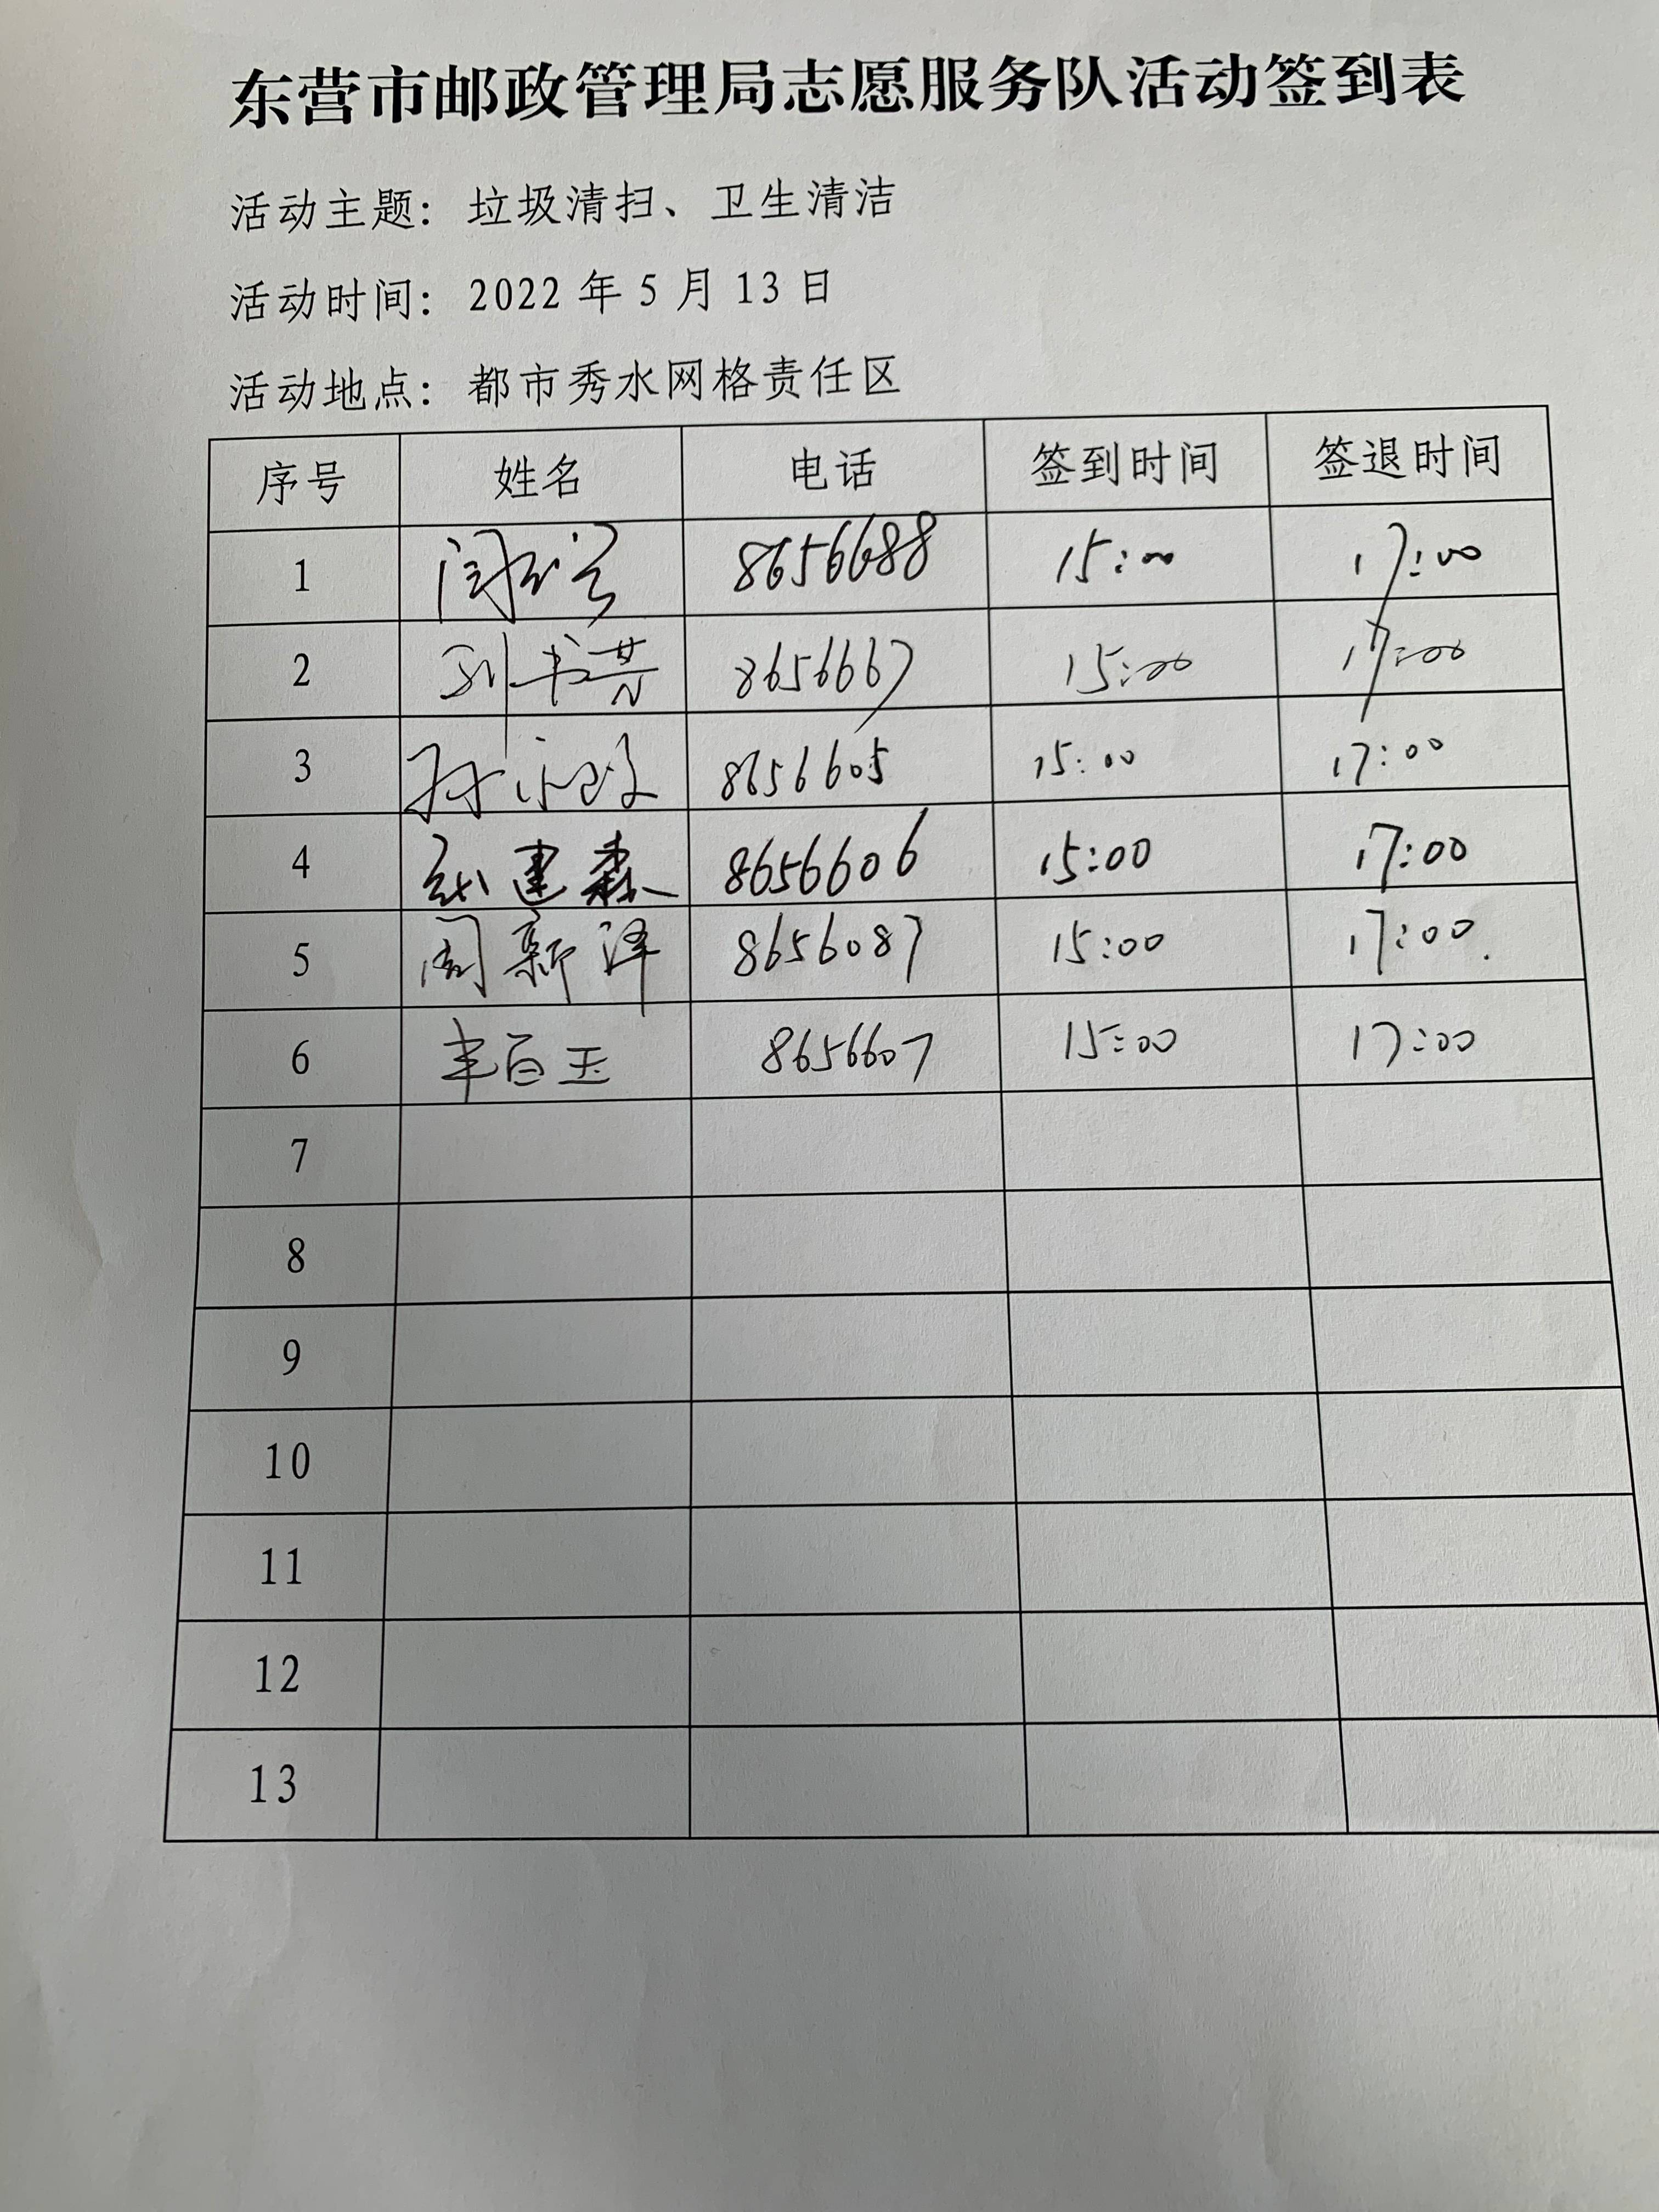 东营市邮政管理局志愿服务队活动签到表
活动主题：垃圾清扫、卫生清洁
活动时间：2022年5月13日
活动地点：都市秀水网格责任区
序号 姓名 电话 签到时间 签退时间
1 8656688 15:00 17:00
2 8656667 15:00 17:00
3 8656605 15:00 17:00
4 建森 8656606 15:00 17:00
5 周新泽 8656087 15:00 17:00.
6 百玉 8656607 15:00 17:00
7
8
9
10
11
12
13